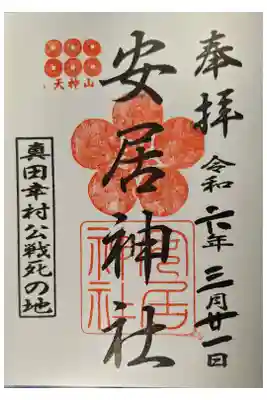 奉拝
令和六年三月廿一日
安居神社
天神山
真田幸村公戦死の地
安居神社